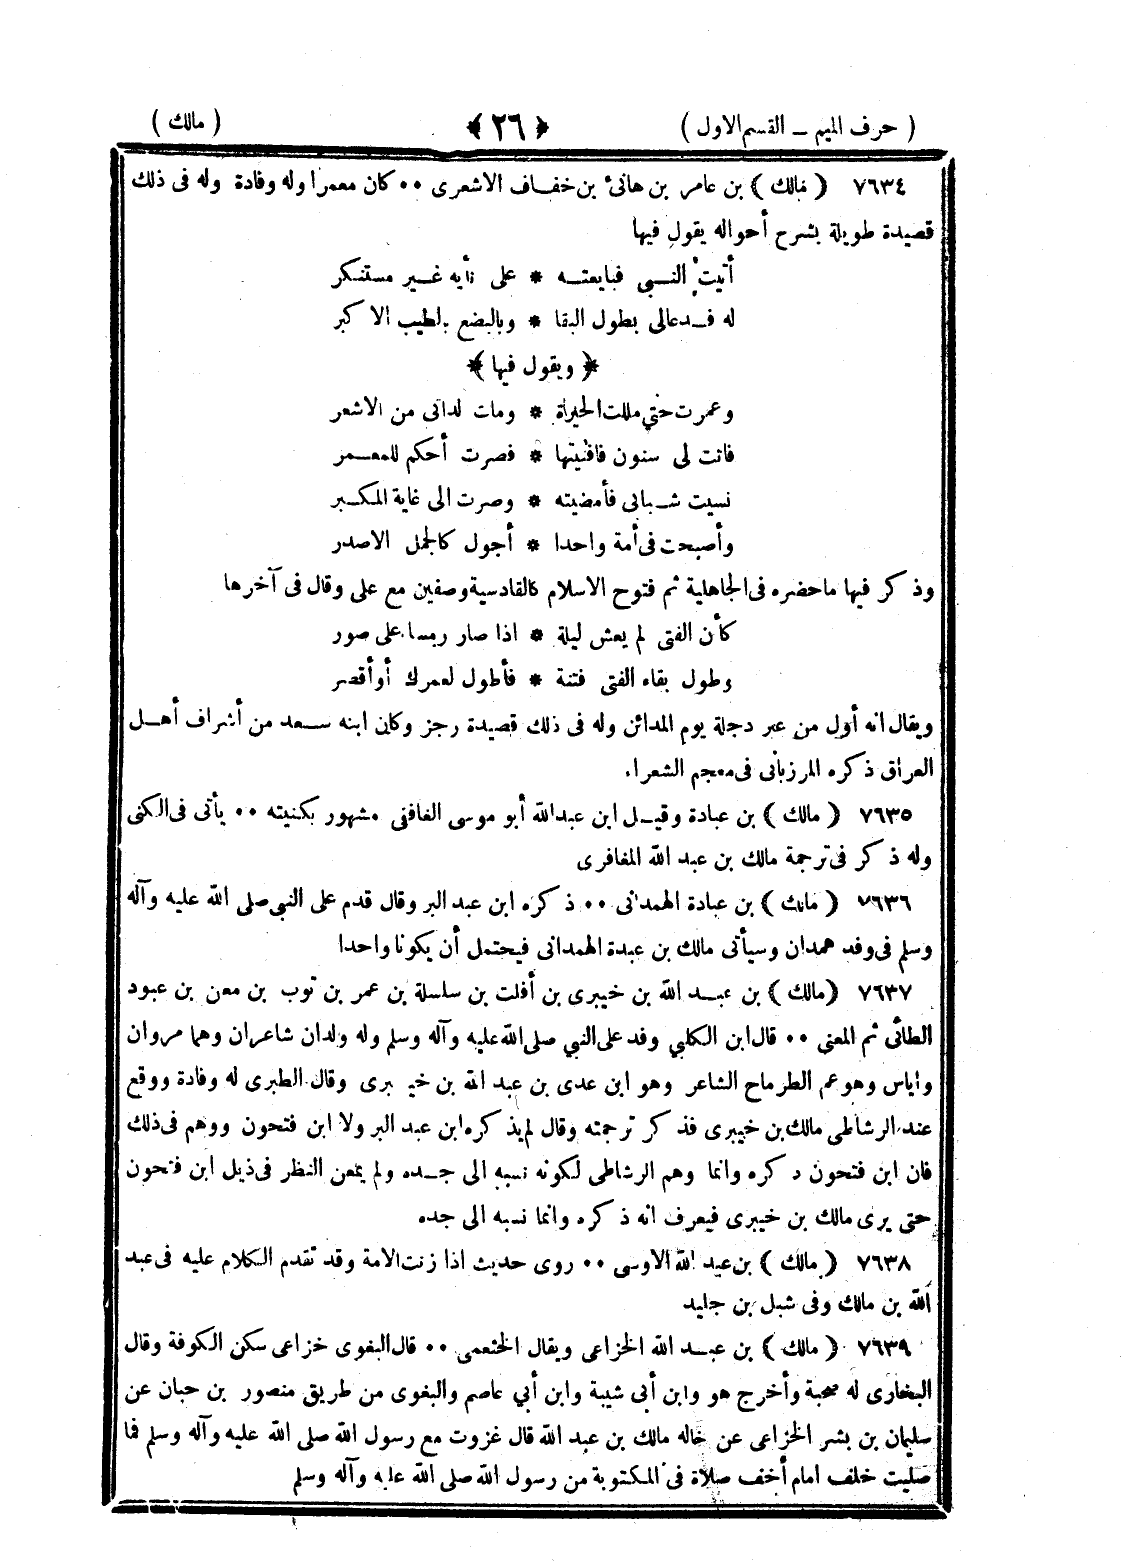 ( حرف الميم ــ القسم الاول ) ﴿ ٢٦ ﴾ ( مالك )
٧٦٣٤ ( مالك ) بن عامر بن هانئ بن خفاف الاشعرى ٠٠ كان معمرا وله وفادة وله فى ذلك
قصيدة طويلة بشرح أحواله يقول فيها
أتيت النبي فبايعته * على نأيه غير مستنكر
له فدعالى بطول البقا * وبالبضع بالطيب الاكبر
﴿ ويقول فيها ﴾
وعمرت حتي مللت الحياة * ومات لداتى من الاشعر
فاتت لى سنون فافنيتها * فصرت أحكم للمعمر
نسيت شبابى فأمضيته * وصرت الى غاية المكبر
وأصبحت فى أمة واحدا * أجول كالجمل الاصدر
وذكر فيها ماحضره فى الجاهلية ثم فتوح الاسلام كالقادسية وصفين مع على وقال فى آخرها
كأن الفتى لم يعش ليلة * اذا صار رمسا على صور
وطول بقاء الفتى فتنة * فأطول لعمرك أوأقصر
ويقال انه أول من عبر دجلة يوم المدائن وله فى ذلك قصيدة رجز وكان ابنه سعد من أشراف أهل
العراق ذكره المرزبانى فى معجم الشعراء
٧٦٣٥ ( مالك ) بن عبادة وقيل ابن عبدالله أبو موسى الغافقى مشهور بكنيته ٠٠ يأتى فى الكنى
وله ذكر فى ترجمة مالك بن عبد الله المغافرى
٧٦٣٦ ( مالك ) بن عبادة الهمدانى ٠٠ ذكره ابن عبد البر وقال قدم على النبي صلى الله عليه وآله
وسلم فى وفد همدان وسيأتى مالك بن عبدة الهمدانى فيحتمل أن يكونا واحدا
٧٦٣٧ ( مالك ) بن عبد الله بن خيبرى بن أفلت بن سلسلة بن عمر بن ثوب بن معن بن عبود
الطائى ثم المعنى ٠٠ قال ابن الكلبي وفد على النبي صلى الله عليه وآله وسلم وله ولدان شاعران وهما مروان
واياس وهو عم الطرماح الشاعر وهو ابن عدى بن عبد الله بن خيبرى وقال الطبرى له وفادة ووقع
عند الرشاطى مالك بن خيبرى فذكر ترجمته وقال لم يذكره ابن عبد البر ولا ابن فتحون ووهم فى ذلك
فان ابن فتحون ذكره وانما وهم الرشاطى لكونه نسبه الى جده ولم يمعن النظر فى ذيل ابن فتحون
حتى يرى مالك بن خيبرى فيعرف انه ذكره وانما نسبه الى جده
٧٦٣٨ ( مالك ) بن عبد الله الاوسى ٠٠ روى حديث اذا زنت الامة وقد تقدم الكلام عليه فى عبد
الله بن مالك وفى شبل بن جليد
٧٦٣٩ ( مالك ) بن عبد الله الخزاعى ويقال الخثعمى ٠٠ قال البغوى خزاعى سكن الكوفة وقال
البخارى له صحبة وأخرج هو وابن أبى شيبة وابن أبي عاصم والبغوى من طريق منصور بن حبان عن
سليمان بن بشر الخزاعى عن خاله مالك بن عبد الله قال غزوت مع رسول الله صلى الله عليه وآله وسلم فما
صليت خلف امام أخف صلاة فى المكتوبة من رسول الله صلى الله عليه وآله وسلم